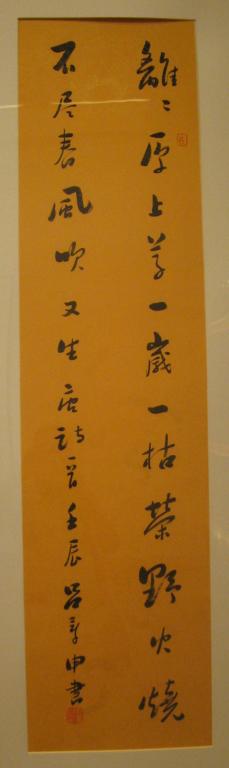 離〻原上草一歲一枯榮野火燒
不尽春風吹又生唐詩一首壬辰呂章申書